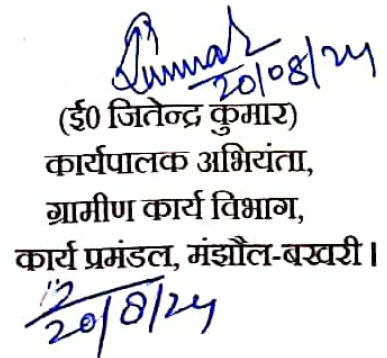 Kumar
20/08/24
(ई0 जितेन्द्र कुमार)
कार्यपालक अभियंता,
ग्रामीण कार्य विभाग,
कार्य प्रमंडल, मंझौल-बखरी।
20/8/24